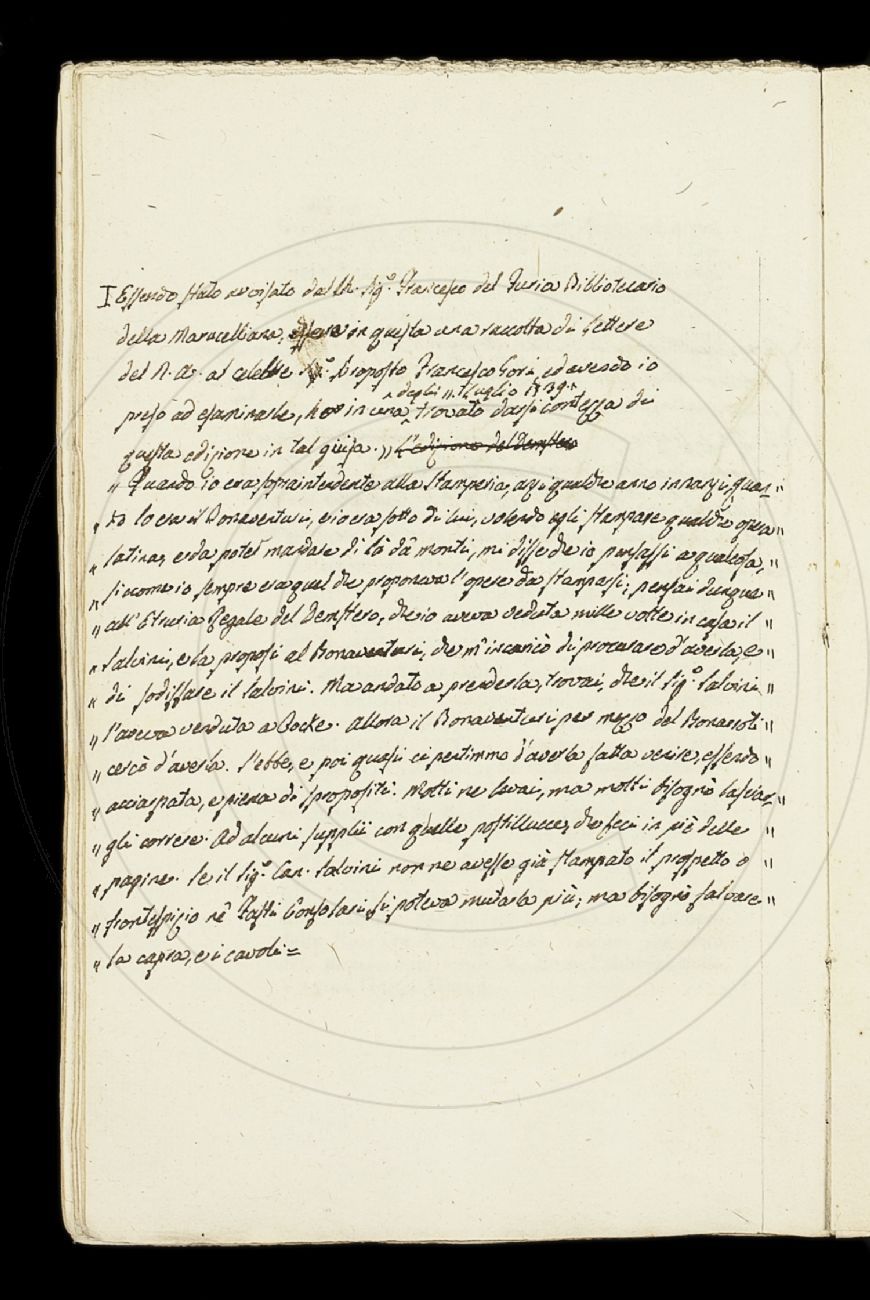 I Essendo stato avvisato dal Ch. Sig.º Francesco del Furia Bibliotecario
della Marucelliana, essere in questa una raccolta di lettere
del N. A. al celebre Sig.º Proposto Francesco Gori, ed avendo io
^ degli 11. Luglio 1739. ^
preso ad esaminarle, ho in una trovato darsi contezza di
questa edizione in tal guisa. „ L'edizione del Demstero
„ Quando io era sopraintendente alla Stamperia, anzi qualche anno innanzi, quan- „
„ do lo era il Bonaventuri, e io era sotto di lui, volendo egli stampare qualche opera „
„ latina, e da poter mandare di là da' monti, mi disse che io pensassi a qualcosa, „
„ siccome io sempre era quel che proponeva l'opere da stamparsi; pensai dunque „
„ all'Etruria Regale del Demstero, che io aveva veduta mille volte in casa il „
„ Salvini, e la proposi al Bonaventuri, che m'incaricò di procurare d'averla, e „
„ di sodisfare il Salvini. Ma andato a prenderla, trovai, che il Sig.º Salvini „
„ l'aveva venduta a Cocke. Allora il Bonaventuri per mezzo del Bonarroti „
„ cercò d'averla. L'ebbe, e poi quasi ci pentimmo d'averla fatta venire, essendo „
„ acciarpata, e piena di spropositi. Molti ne levai, ma molti bisognò lasciar- „
„ gli correre. Ad alcuni supplii con quelle postillucce, che feci in piè delle „
„ pagine. Se il Sig.º Can. Salvini non ne avesse già stampato il prospetto o „
„ frontespizio ne' Fasti Consolari, si poteva mutarla più; ma bisognò salvare „
„ la capra, e i cavoli =